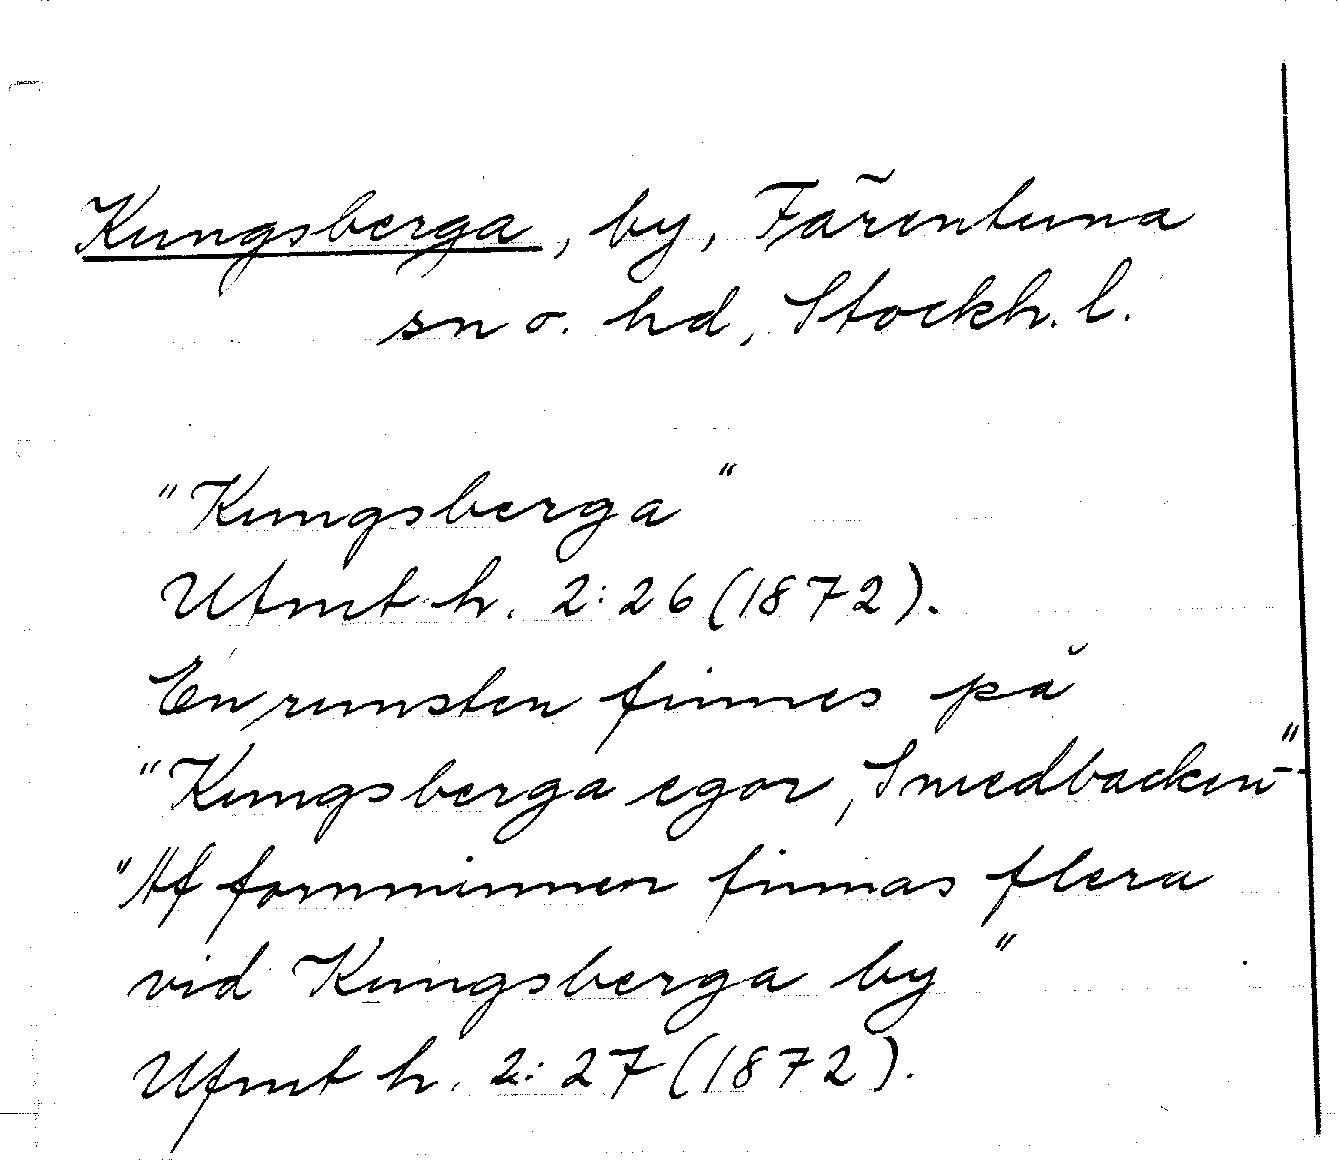 Kungsberga, by, Färentuna
sn o. hd, Stockh. l.
"Kungsberga"
Ufmt h. 2:26 (1872).
En runsten finnes på
"Kungsberga egor, Smedbacken"
"Af fornminnen finnas flera
vid Kungsberga by"
Ufmt h. 2:27 (1872).